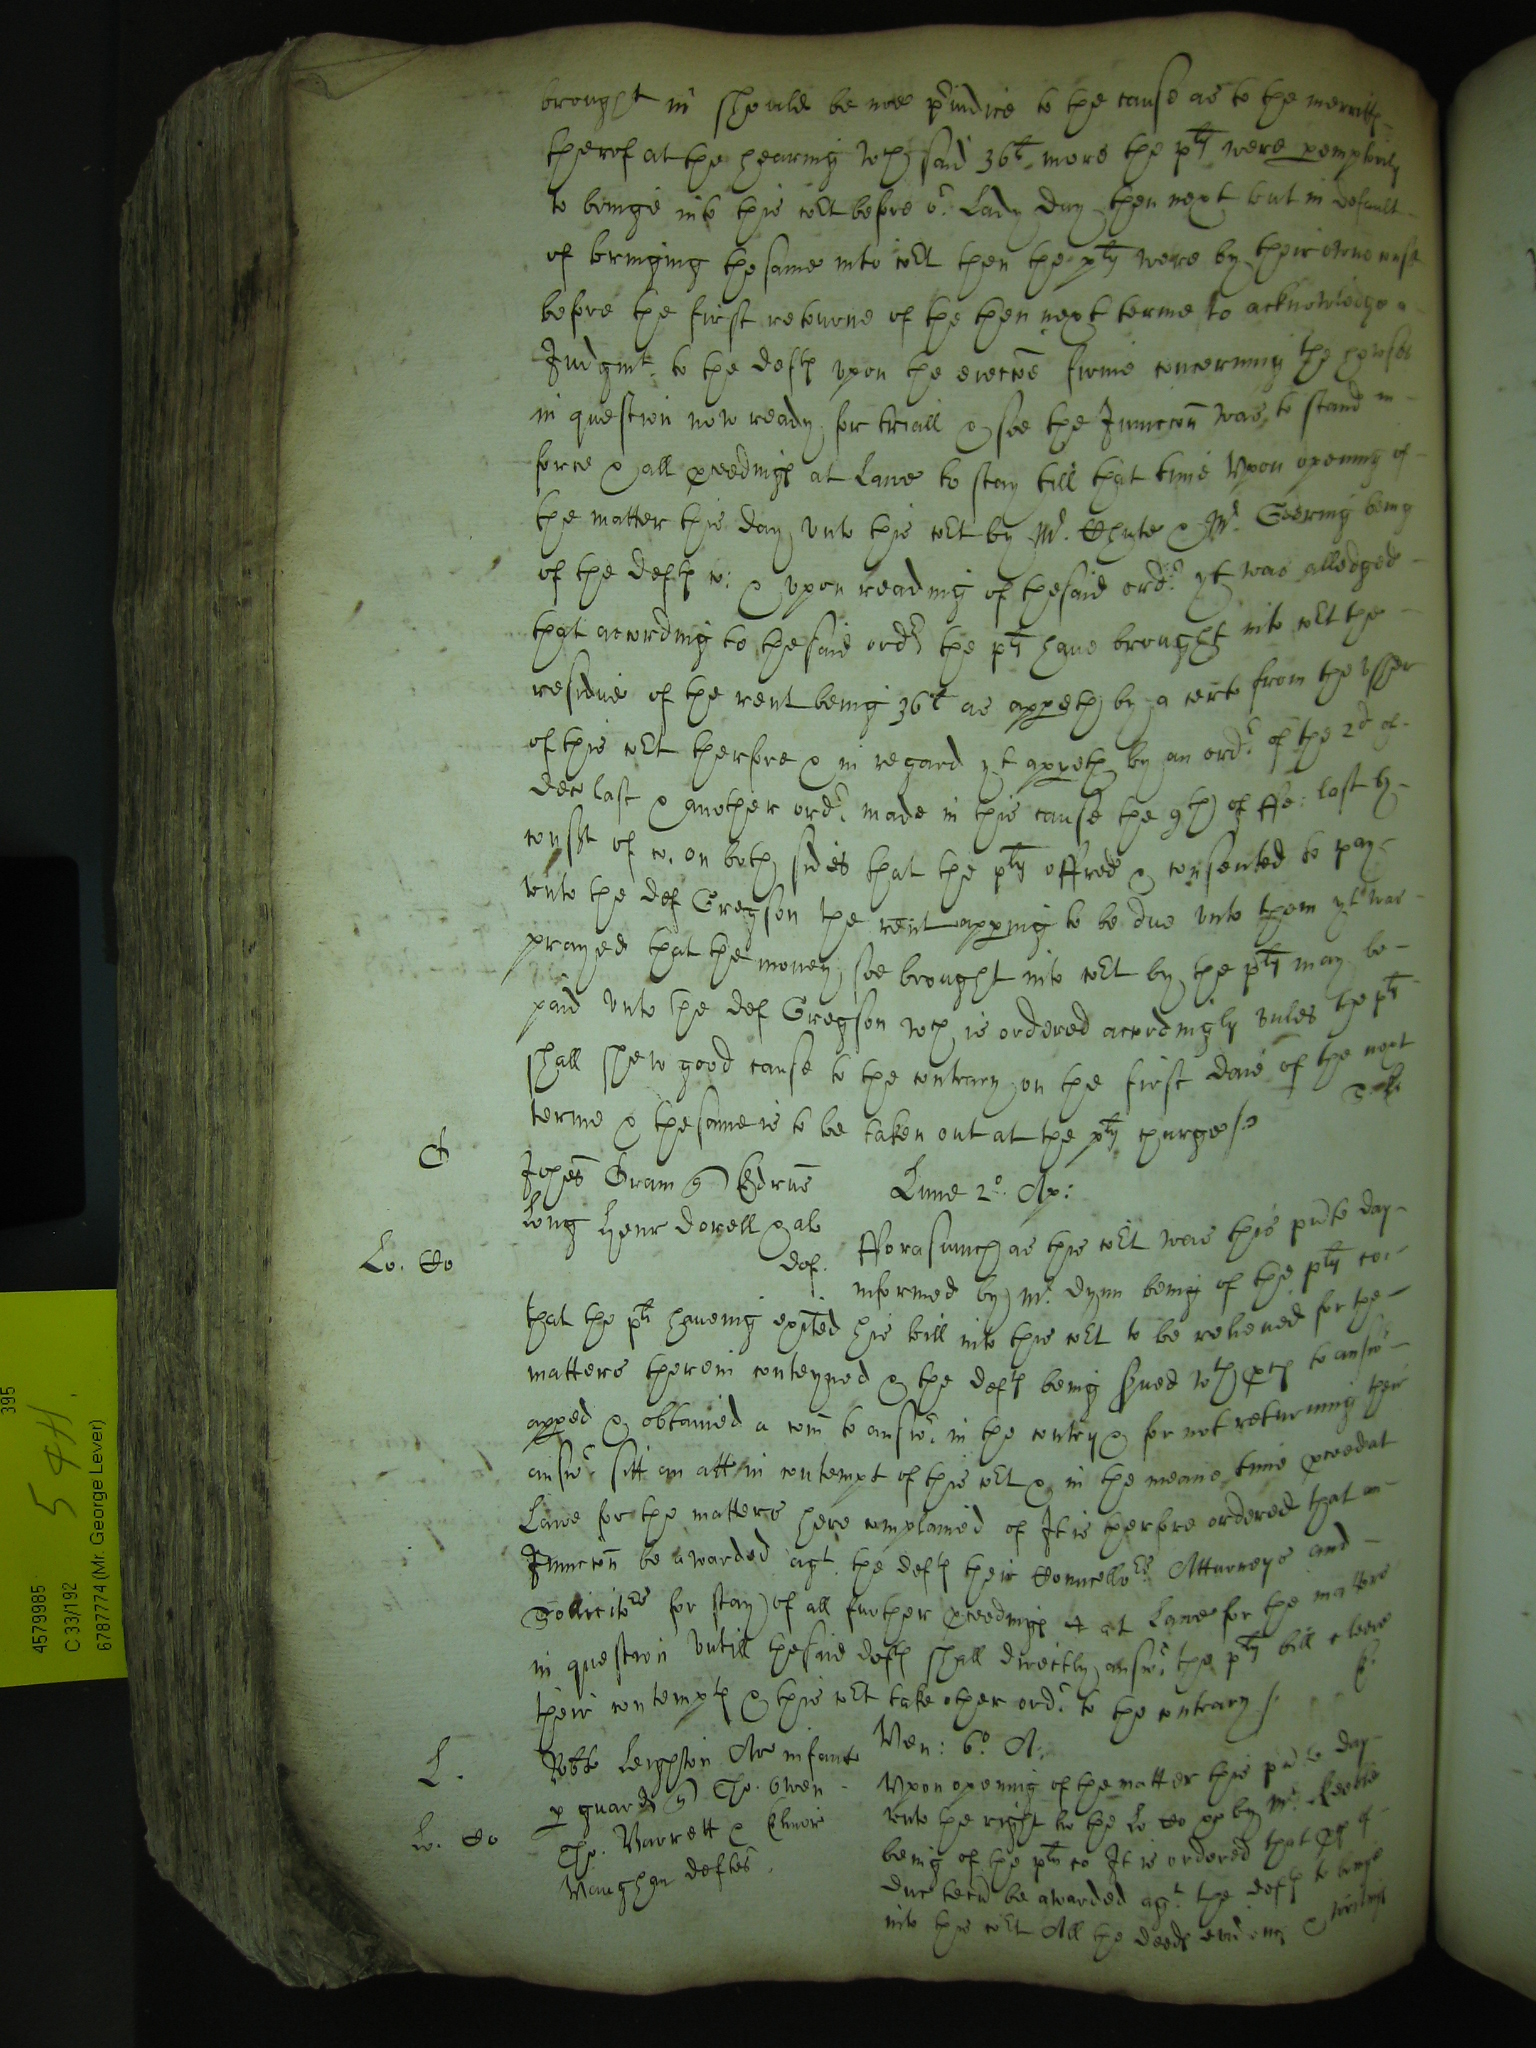 brought in should be noe p'iudice to the cause as to the merritts
therof at the hearing wch said 36l more the plts were peremptorily
to bringe into this Cort before or Lady Day then next but in default
of bringing the same into Cort then the plts were by their owne consent
before the first retourne of the then next terme to acknowledge a
Judgmt to the defts vpon the eieccōe firme concerning the howses
in question now ready for triall & soe the Iniunccōn was to stand in
force & all pceedings at Lawe to stay till that time Vpon opening of
the matter this day vnto this Cort by Mr. Whyte & Mr. Geering being
of the defts co: & vpon reading of the said ordr yt was alledged
that according to the said ordr the plts haue brought into Cort the
residue of the rent being 36l as appeth by a certe from the Vssher
of this Cort therfore & in regard yt appeth by an ordr of the 2d of
Dec last & another ordr made in this cause the 9th of ffe: last by
consent of co. on both sides that the plts offred & consented to pay
vnto the def Gregson the rent appring to be due vnto them yt was
prayed that the money soe brought into Cort by the plts may be
paid vnto the def Gregson wch is ordered accordingly vnles the plts
shall shew good cause to the contrary on the first daie of the next
terme & the same is to be taken out at the plts charge /
Johēs Gram q Edrūs
Long Henr Dorell & al
def.
Lune 2o. Ap:
Lo. Co
fforasmuch as this Cort was this pnte day
informed by Mr. dynn being of the plts co:
that the plt haueing exited his bill into this Cort to be releiued for the
matters therein conteyned & the defts being serued wth pces to answ
apped & obtained a com to answr. in the contry & for not returning their
answr. sitt an att in contempt of this Cort & in the meane time pceed at
Lawe for the matters here complained of It is therfore ordered that an
Iniunccōn be awarded agt. the defts their Councellors Attorneys and
Sollicitors for stay of all further pceedings at Lawe for the matters
in question vntill the said defts shall directly answr. the plts bill cleere
their contempts & this Cort take other ordr. to the contrary /
L.
Robte Leighton Ar infante
p guard q Tho. Owen
Tho. Barrett & Elinor
Vaughan deftes.
Ven: 6o. A.
Lo. Co
Vpon opening of the matter this pnte day
vnto the right ho the Lo Co by Mr. Keeble
being of the plts co It is ordered that pces of
duc tecū be awarded agt. the defts to bringe
into this Cort All the deeds evidenc & writings
395
544
4579985
C 33/192
6787774 (Mr. George Lever)